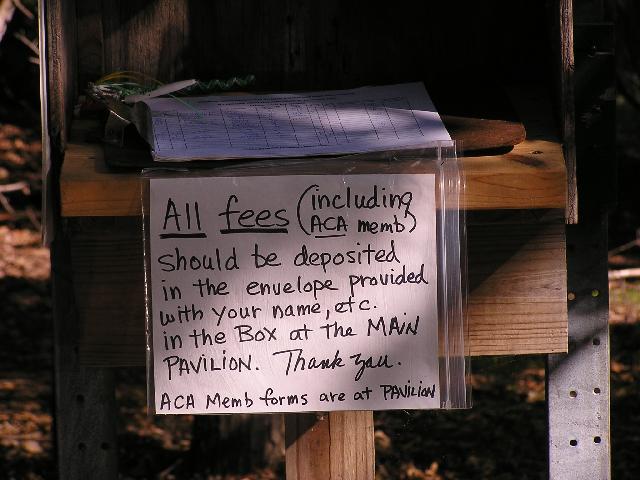 All fees (including
ACA memb)
should be deposited
in the envelope provided
with your name, etc.
in the Box at the MAIN
PAVILION. Thank you.
ACA Memb forms are at PAVILION